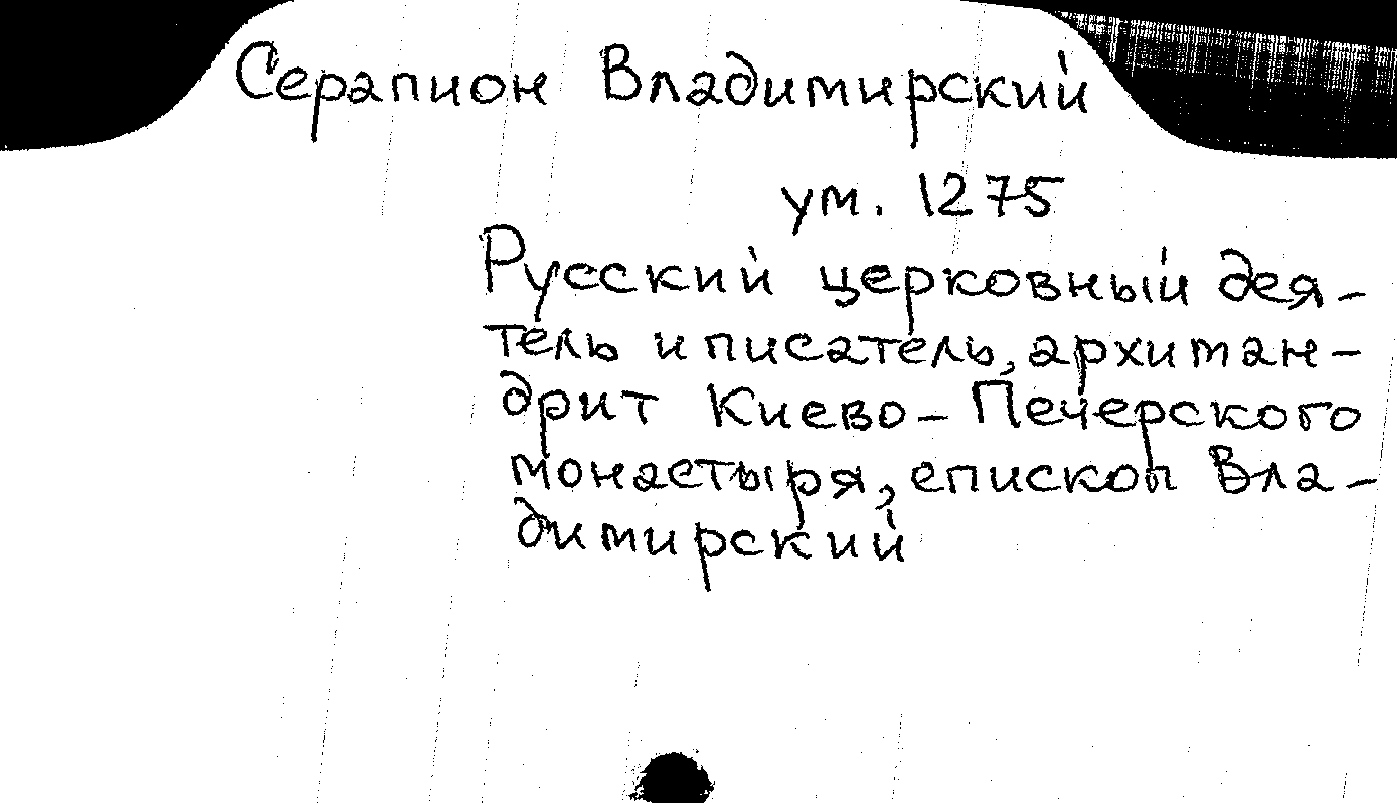 Серапион Владимирский
ум. 1275
Русский церковный дея-
тель и писатель, архиман-
дрит Киево-Печерского
монастыря, епископ Вла-
димирский